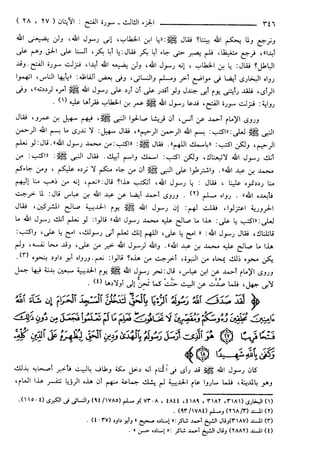 ٣٤٦ الجزء الثالث - سورة الفتح : الآيتان ( ٢٧ ، ٢٨ )
ونرجع ولما يحكم الله بيننا؟ فقال ﷺ: «يا ابن الخطاب، إني رسول الله، ولن يضيعني الله
أبدا»، فرجع متغيظا، فلم يصبر حتى جاء أبا بكر فقال: يا أبا بكر، ألسنا على الحق وهم على
الباطل؟ فقال: يا بن الخطاب، إنه رسول الله، ولن يضيعه الله أبدا، فنزلت سورة الفتح. وقد
رواه البخاري أيضا فى مواضع أخر ومسلم والنسائى، وفى بعض ألفاظه: «يأيها الناس، اتهموا
الرأى، فلقد رأيتنى يوم أبى جندل ولو أقدر على أن أرد على رسول الله ﷺ أمره لرددته»، وفى
رواية: فنزلت سورة الفتح، فدعا رسول الله ﷺ عمر بن الخطاب فقرأها عليه (١) .
وروى الإمام أحمد عن أنس، أن قريشا صالحوا النبى ﷺ، فيهم سهيل بن عمرو، فقال
النبى ﷺ لعلى: «اكتب: بسم الله الرحمن الرحيم»، فقال سهيل: لا ندرى ما بسم الله الرحمن
الرحيم، ولكن اكتب: «باسمك اللهم». فقال: «اكتب: من محمد رسول الله». قال: لو نعلم
أنك رسول الله لاتبعناك، ولكن اكتب: اسمك واسم أبيك. فقال النبى ﷺ: «اكتب: من
محمد بن عبد الله». واشترطوا على النبى ﷺ أن من جاء منكم لا نرده عليكم ، ومن جاءكم
منا رددتموه علينا ، فقال : يا رسول الله، أتكتب هذا؟ قال: «نعم، إنه من ذهب منا إليهم
فأبعده الله» . رواه مسلم (٢) . وروى أحمد أيضا عن عبد الله بن عباس قال: لما خرجت
الحرورية اعتزلوا، فقلت لهم: إن رسول الله ﷺ يوم الحديبية صالح المشركين، فقال
لعلى: «اكتب يا على: هذا ما صالح عليه محمد رسول الله» قالوا: لو نعلم أنك رسول الله ما
قاتلناك، فقال رسول الله: « امح يا على، اللهم إنك تعلم أنى رسولك، امح يا على، واكتب:
هذا ما صالح عليه محمد بن عبد الله». والله لرسول الله خير من على، وقد محا نفسه، ولم
يكن محوه ذلك يمحاه من النبوة، أخرجت من هذه؟ قالوا: نعم. ورواه أبو داود بنحوه (٣) .
وروى الإمام أحمد عن ابن عباس، قال: نحر رسول الله ﷺ يوم الحديبية سبعين بدنة فيها جمل
لأبى جهل، فلما صدت عن البيت حنت كما تحن إلى أولادها (٤) .
لَّقَدْ صَدَقَ ٱللَّهُ رَسُولَهُ ٱلرُّءْيَا بِٱلْحَقِّ لَتَدْخُلُنَّ ٱلْمَسْجِدَ ٱلْحَرَامَ إِن شَآءَ ٱللَّهُ
ءَامِنِينَ مُحَلِّقِينَ رُءُوسَكُمْ وَمُقَصِّرِينَ لَا تَخَافُونَ فَعَلِمَ مَا لَمْ تَعْلَمُوا۟ فَجَعَلَ مِن دُونِ ذَٰلِكَ
فَتْحًا قَرِيبًا (٢٧) هُوَ ٱلَّذِىٓ أَرْسَلَ رَسُولَهُ بِٱلْهُدَىٰ وَدِينِ ٱلْحَقِّ لِيُظْهِرَهُ عَلَى ٱلدِّينِ كُلِّهِ وَكَفَىٰ
بِٱللَّهِ شَهِيدًا (٢٨)
كان رسول الله ﷺ قد رأى فى المنام أنه دخل مكة وطاف بالبيت فأخبر أصحابه بذلك
وهو بالمدينة، فلما ساروا عام الحديبية لم يشك جماعة منهم أن هذه الرؤيا تتفسر هذا العام،
(١) البخارى (٣١٨١ ، ٣١٨٢ ، ٤١٨٩ ، ٤٨٤٤ ، ٧٣٠٨) ومسلم (٩٤/١٧٨٥) والنسائى فى الكبرى (١١٥٠٤) .
(٢) المسند (٢٦٨/٣) ومسلم (٩٣/١٧٨٤) .
(٣) المسند (٣١٨٧) وقال الشيخ أحمد شاكر: «إسناده صحيح» وأبو داود (٤٠٣٧) .
(٤) المسند (٢٨٨٢) وقال الشيخ أحمد شاكر : «إسناده حسن» .